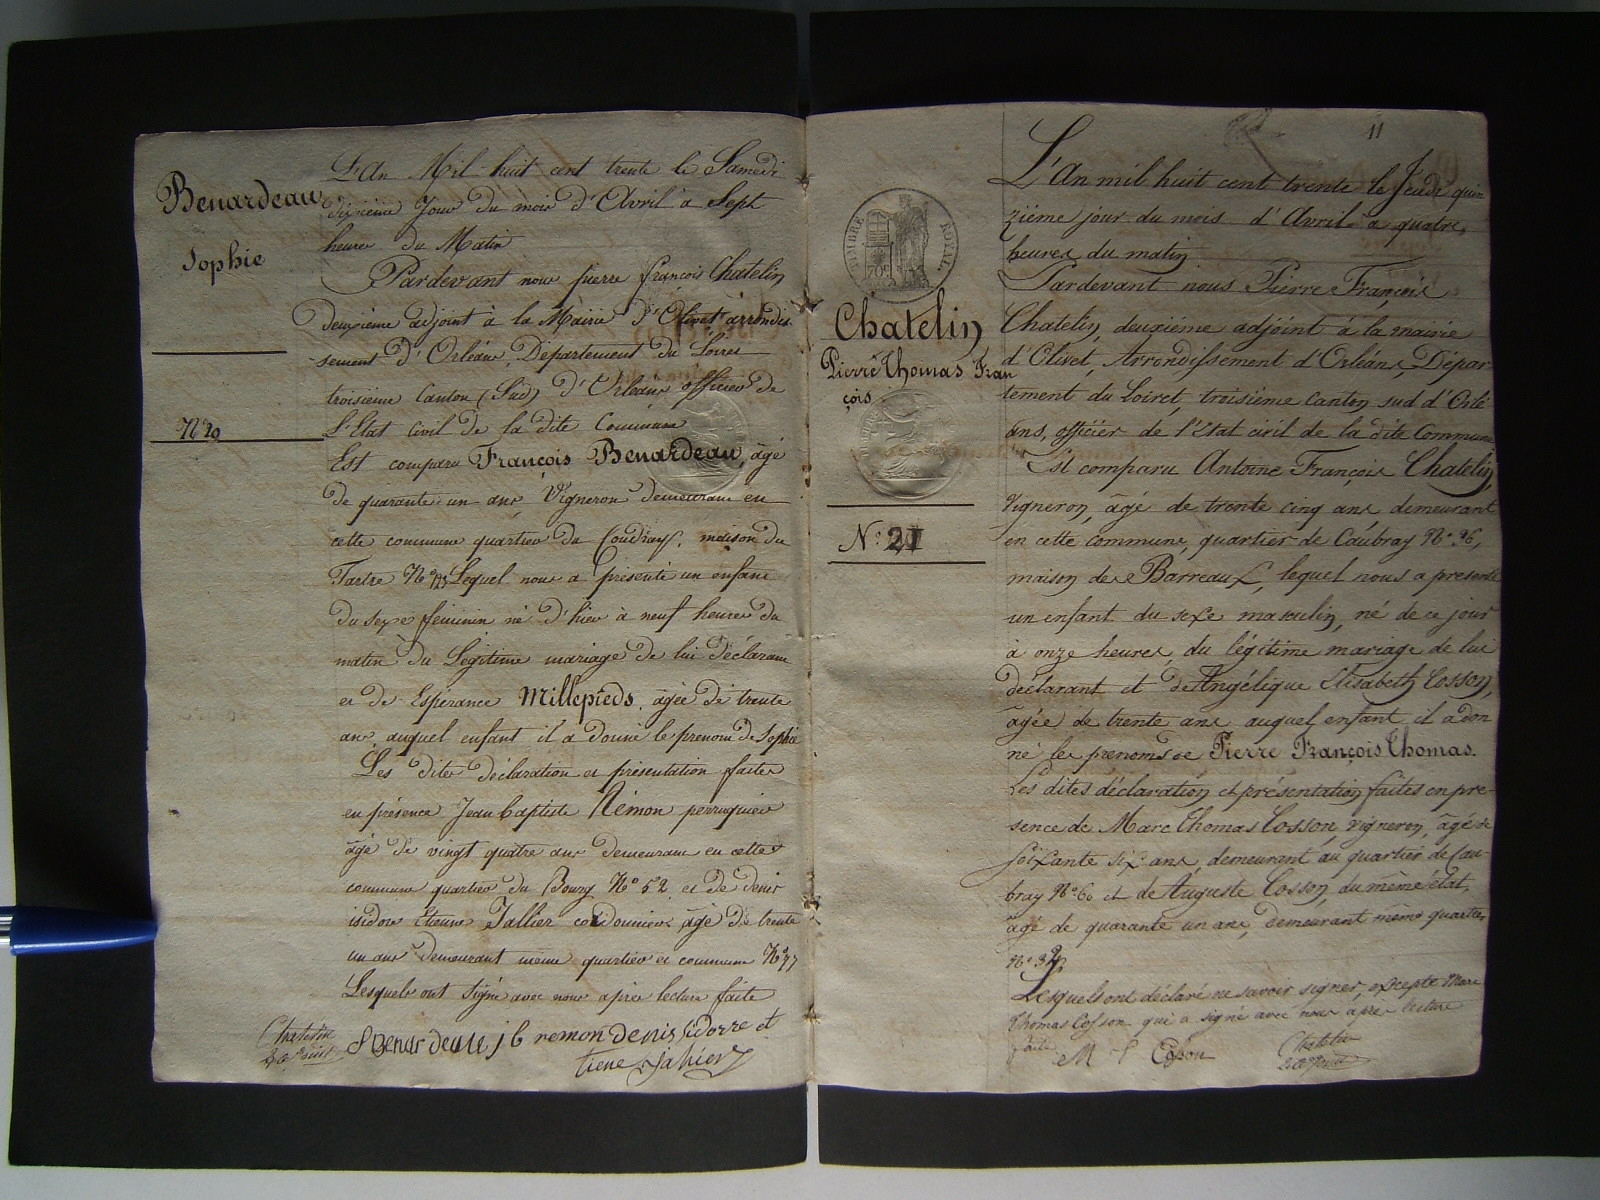 Benardeau
Sophie
N° 20
L'An Mil huit cent trente le Samedi
dixième Jour du mois d'Avril à Sept
heures du Matin
Pardevant nous pierre françois Chatelin
deuxième adjoint à la Mairie d'Olivet arrondis
sement d'Orléans, Département du Loiret
troisième Canton (Sud) d'Orléans officier de
L'Etat Civil de la dite Commune
Est comparu François Benardeau, âgé
de quarante un ans, Vigneron demeurant en
cette commune quartier du Coudray, maison du
Tartre N° Lequel nous a présenté un enfant
du sexe féminin né d'hier à neuf heures du
matin du Légitime mariage de lui déclarant
et de Espérance Millepieds, agée de trente
ans auquel enfant il a donné le prenom de Sophie
Les dites déclaration et présentation faites
en présence Jean baptiste Némon perruquier
âgé de vingt quatre ans demeurant en cette
commune quartier du Bourg N° 52 et de denis
isidore Etienne Jallier cordonnier âgé de trente
un ans demeurant même quartier et commune N° 77
Lesquels ont Signé avec nous après lecture faite
Chatelin
f Benardeau j b nemon denis isidorre et
tiene Jahier
11
TIMBRE ROYAL
70c
Chatelin
Pierre Thomas Fran
çois
N° 21
L'An mil huit cent trente le Jeudi quin
zième jour du mois d'Avril à quatre
heures du matin
Pardevant nous Pierre François
Chatelin, deuxième adjoint à la mairie
d'Olivet, Arrondissement d'Orléans Dépar
tement du Loiret, troisième canton sud d'Orlé
ans, officier de l'état civil de la dite Commune
Est comparu Antoine François Chatelin,
Vigneron, âgé de trente cinq ans demeurant
en cette commune, quartier de Caubray N° 36,
maison des Barreaux, lequel nous a presenté
un enfant du sexe masculin, né de ce jour
à onze heures, du légitime mariage de lui
déclarant et d'Angélique Elisabeth Cosson,
âgée de trente ans auquel enfant il a don
né les prenoms de Pierre François Thomas.
Les dites déclaration et présentation faites en pre-
sence de Marc Thomas Cosson, vigneron, âgé de
soixante six ans, demeurant au quartier de Cau-
bray N° 60 et de Auguste Cosson, du même état,
âgé de quarante un ans, demeurant même quartier
N° 32
Lesquels ont déclaré ne savoir signer, excepté Marc
Thomas Cosson qui a signé avec nous après lecture
faite
M t Cosson
Chatelin